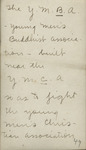 The Y M B A
- young men's
Buddhist associa-
tion - built
near the
Y M C A
was to fight
the young
men's Chris-
tian association